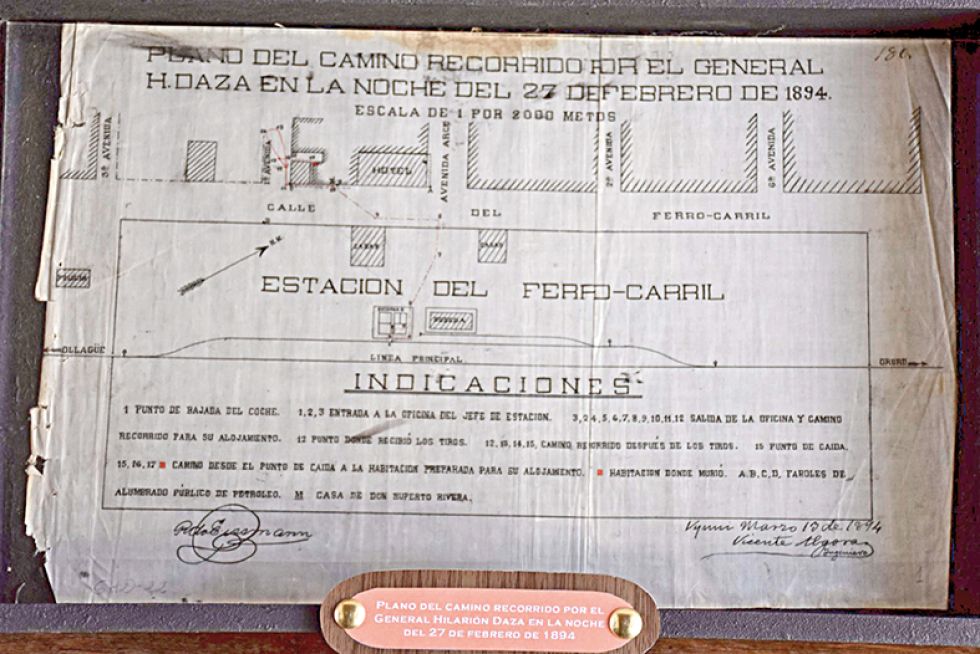 PLANO DEL CAMINO RECORRIDO POR EL GENERAL
H. DAZA EN LA NOCHE DEL 27 DE FEBRERO DE 1894.
ESCALA DE 1 POR 2000 METOS
186.
3ª AVENIDA
1ª AVENIDA
HOTEL
AVENIDA ARCE
2ª AVENIDA
6ª AVENIDA
CALLE DEL FERRO-CARRIL
N.M.
ESTACION DEL FERRO-CARRIL
BODEGA
OLLAGÜE
LINEA PRINCIPAL
ORURO
INDICACIONES
1 PUNTO DE BAJADA DEL COCHE. 1,2,3 ENTRADA A LA OFICINA DEL JEFE DE ESTACION. 3,2,4,5,6,7,8,9,10,11,12 SALIDA DE LA OFICINA Y CAMINO
RECORRIDO PARA SU ALOJAMIENTO. 12 PUNTO DONDE RECIBIÓ LOS TIROS. 12,13,14,15, CAMINO RECORRIDO DESPUES DE LOS TIROS. 15 PUNTO DE CAIDA.
15,16,17 CAMINO DESDE EL PUNTO DE CAIDA A LA HABITACION PREPARADA PARA SU ALOJAMIENTO. HABITACION DONDE MURIÓ. A.B.C.D, FAROLES DE
ALUMBRADO PÚBLICO DE PETROLEO. M CASA DE DON RUPERTO RIVERA.
Uyuni Marzo 13 de 1894
Vicente
Ingeniero
1
PLANO DEL CAMINO RECORRIDO POR EL
GENERAL HILARIÓN DAZA EN LA NOCHE
DEL 27 DE FEBRERO DE 1894